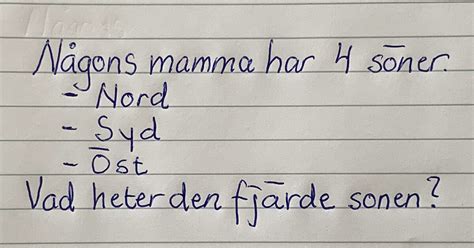 Någons mamma har 4 söner.
- Nord
- Syd
- Öst
Vad heter den fjärde sonen?